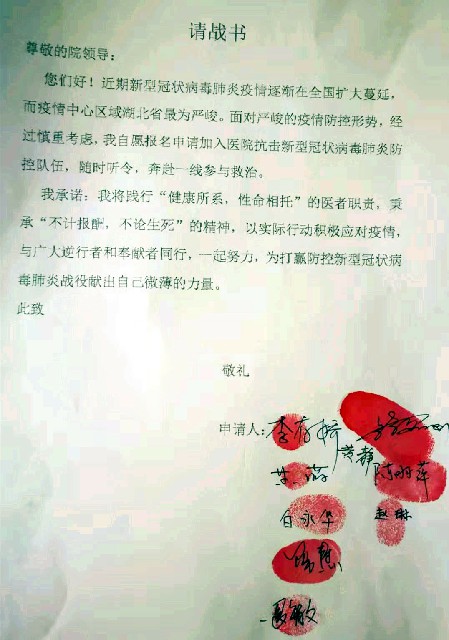 请战书
尊敬的院领导：
您们好！近期新型冠状病毒肺炎疫情逐渐在全国扩大蔓延，
而疫情中心区域湖北省最为严峻。面对严峻的疫情防控形势，经
过慎重考虑，我自愿报名申请加入医院抗击新型冠状病毒肺炎防
控队伍，随时听令，奔赴一线参与救治。
我承诺：我将践行“健康所系，性命相托”的医者职责，秉
承“不计报酬，不论生死”的精神，以实际行动积极应对疫情，
与广大逆行者和奉献者同行，一起努力，为打赢防控新型冠状病
毒肺炎战役献出自己微薄的力量。
此致
敬礼
申请人：李
黄静
陈羽萍
白永华 赵琳
敏